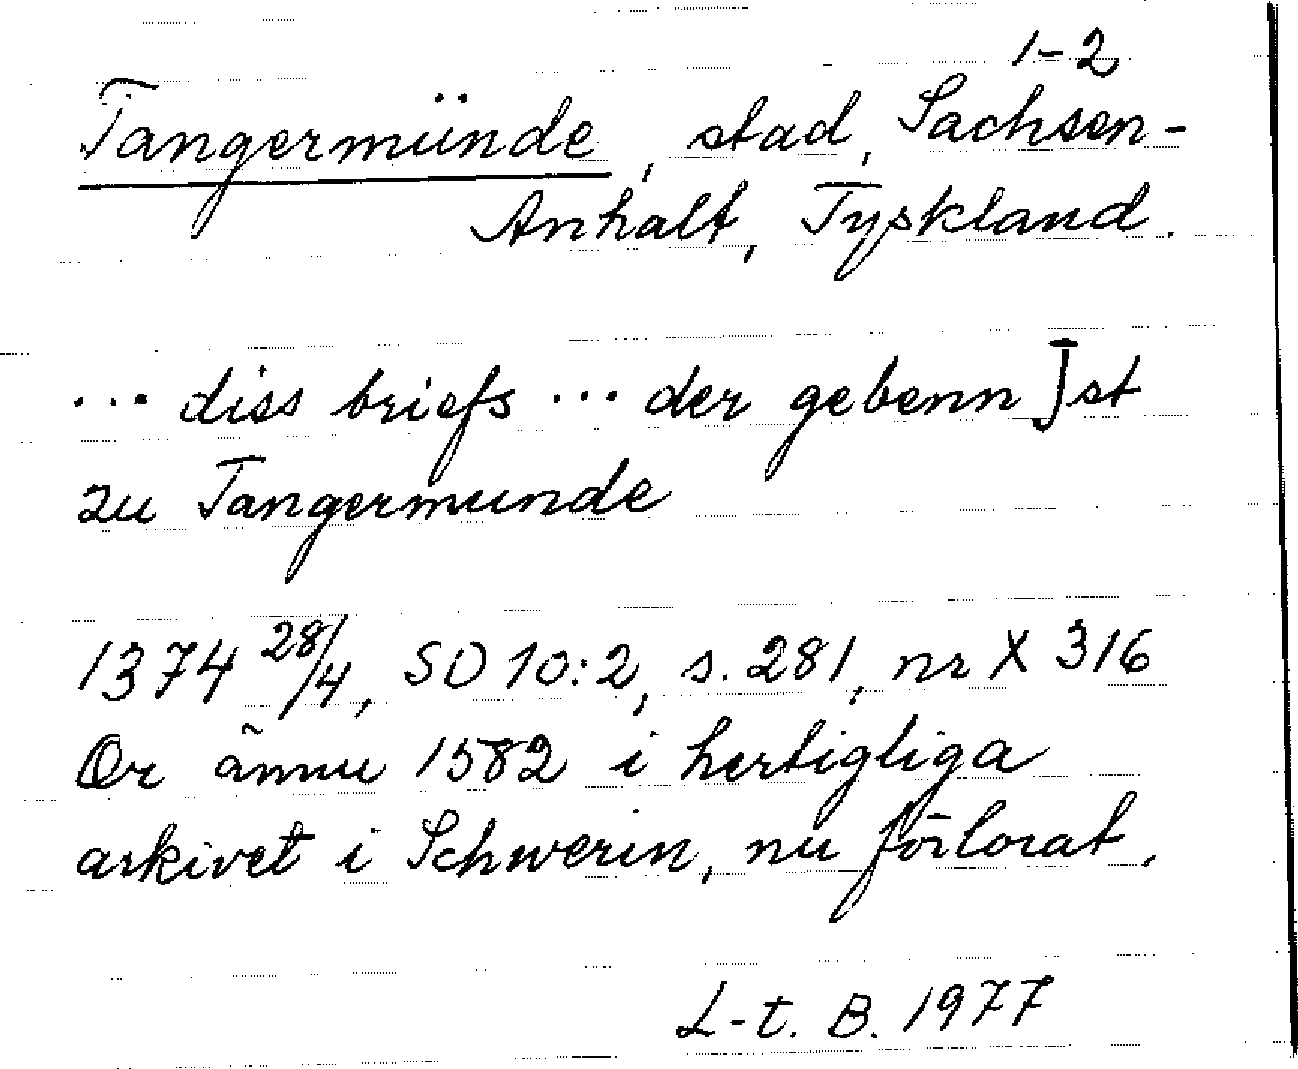 1-2
Tangermünde, stad, Sachsen-
Anhalt, Tyskland.
... diss briefs ... der gebenn Jst
zu Tangermunde
1374 28/4, SD 10:2, s. 281, nr X 316
Or ännu 1582 i hertigliga
arkivet i Schwerin, nu förlorat.
L-t. B. 1977